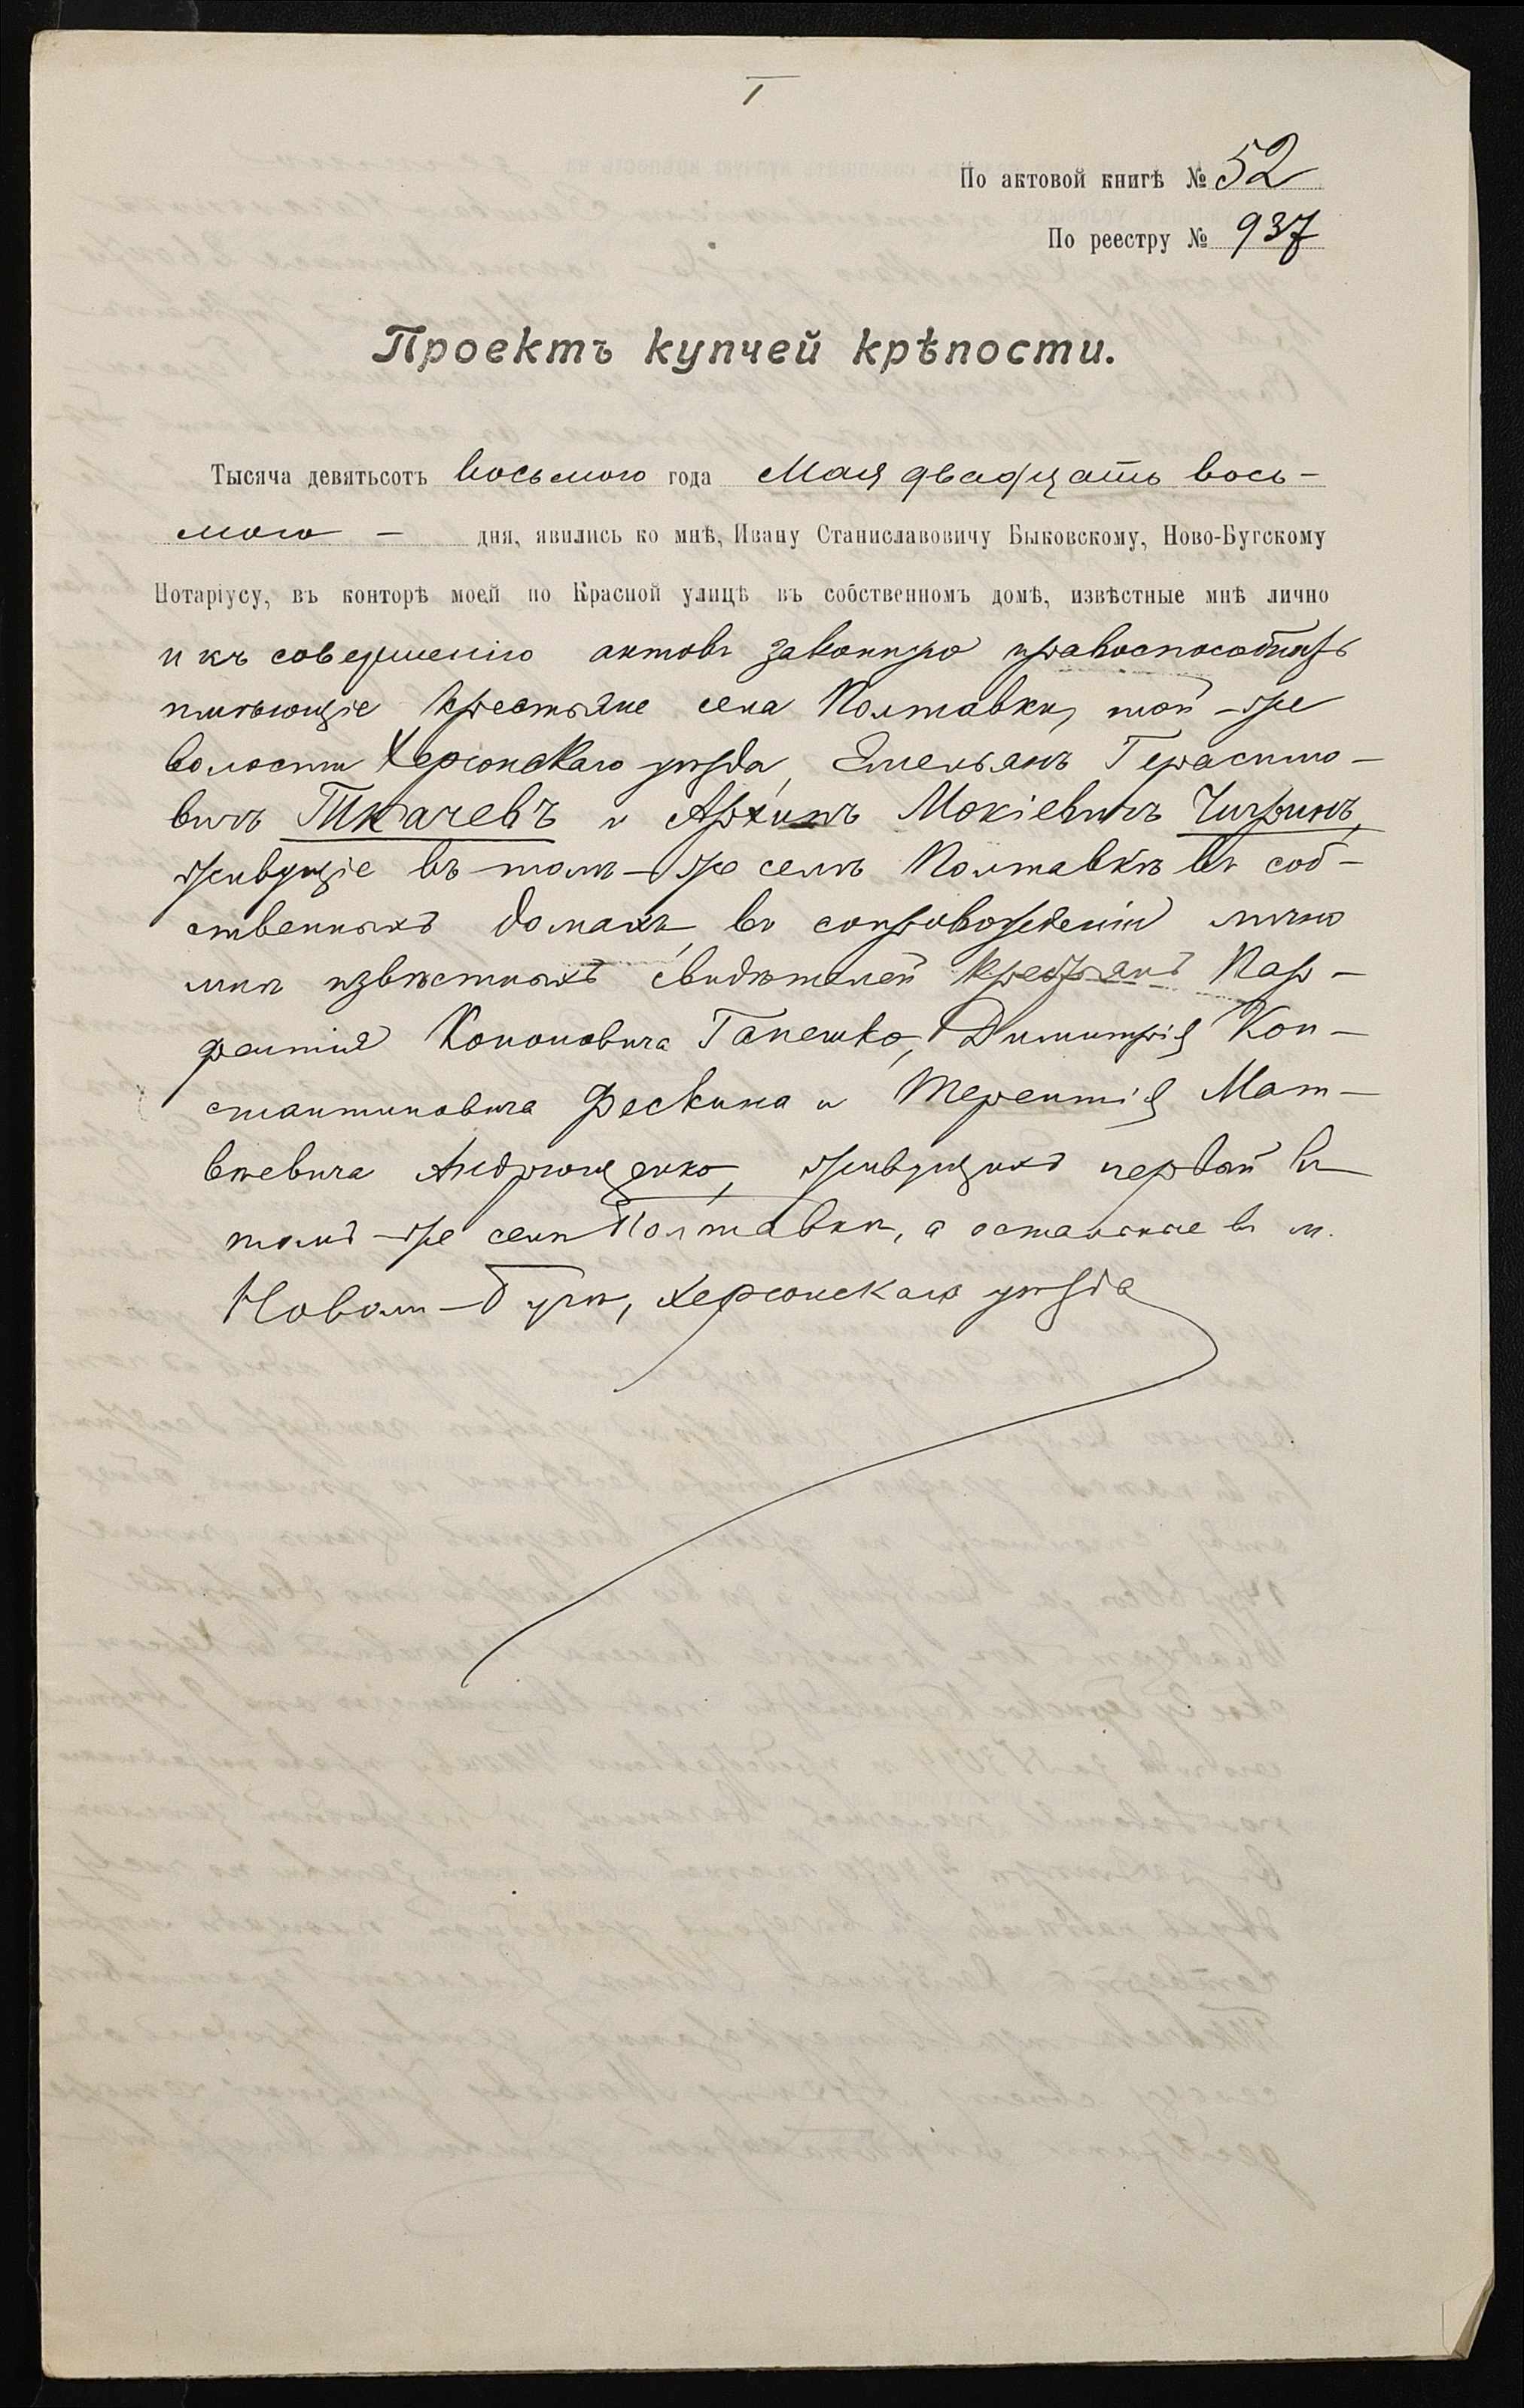 I
По актовой книгѣ № 52
По реестру № 937
Проектъ купчей крѣпости.
Тысяча девятьсотъ восьмого года Мая двадцать вось-
мого - дня, явились ко мнѣ, Ивану Станиславовичу Быковскому, Ново-Бугскому
Нотаріусу, въ конторѣ моей по Красной улицѣ въ собственномъ домѣ, извѣстные мнѣ лично
и къ совершенію актовъ законную правоспособность
имѣющіе крестьяне села Полтавки, той-же
волости Херсонскаго уѣзда, Емельянъ Герасимо-
вичъ Ткачевъ и Архипъ Мокіевичъ Чигринъ,
живущіе въ томъ-же селѣ Полтавкѣ въ соб-
ственныхъ домахъ, въ сопровожденіи лично
мнѣ извѣстныхъ свидѣтелей крестьянъ Пар-
фентія Кононовича Димитрія Кон-
стантиновича Фескина и Терентія Мат-
вѣевича Андрющенко, живущихъ первый въ
томъ-же селѣ Полтавкѣ, а остальные въ м.
Новомъ-Бугѣ, Херсонскаго уѣзда